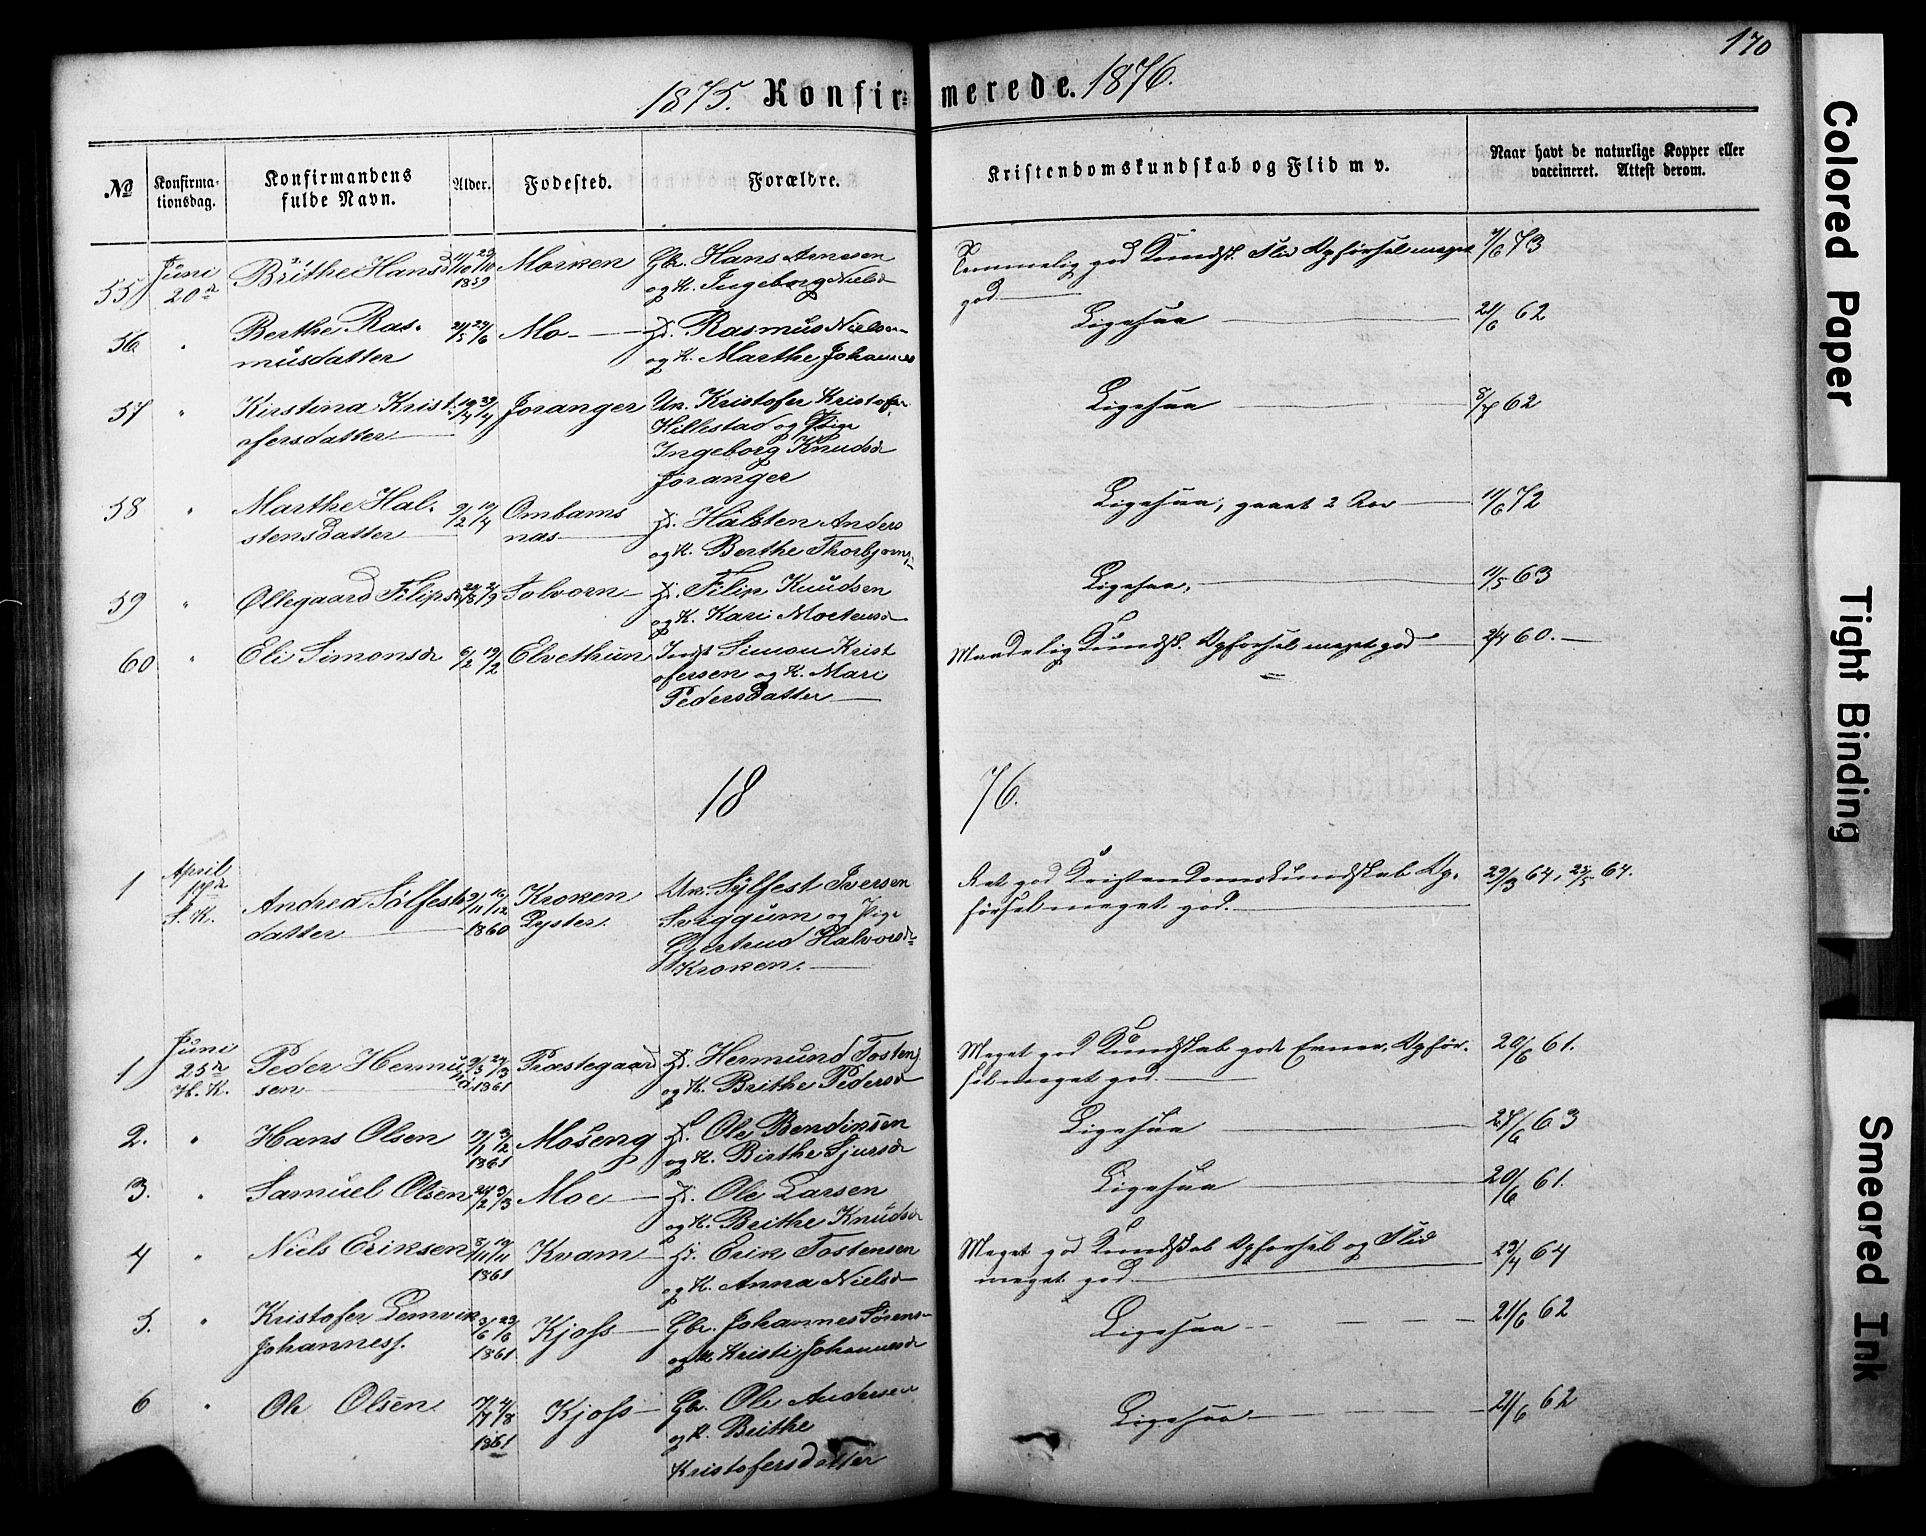 170
1875. Konfirmerede. 1876.
No
Konfirmationsdag.
Konfirmandens fulde Navn.
Alder.
Fødested.
Forældre.
Kristendomskundskab og Flid m v.
Naar havt de naturlige Kopper eller vaccineret. Attest derom.
55 Juni 20de Brithe Hansd 11/10 23/10 1859 Morken Gbr. Hans Arnesen
og K. Ingeborg Nielsd
Temmelig god Kundsk. Flid Opførsel meget god 7/6 73
56 " Berthe Ras-
musdatter 21/5 24/6 Mo Hd. Rasmus Nielsen
og K. Marthe Johannes
Ligesaa 21/6 62
57 " Kirstina Krist
ofersdatter Joranger Un. Kristofer Kristofer
Hillestad og Pige
Ingeborg Knudsd
Joranger
Ligesaa 8/7 62
58 " Marthe Hal-
stensdatter 9/2 10/4 Ombams
nas Hd. Halsten Anders
og K. Berthe Thorbjørns
Ligesaa, gaaet 2 Aar 11/6 72
59 " Øllegaard Filipsd 24/8 21/9 Solvorn Hd. Filip Knudsen
og K. Kari Mortensd
Ligesaa, 11/5 63
60 " Eli Simonsd 6/2 19/2 Elvethun Indst Simon Krist
ofersen og K. Mari
Pedersdatter
Maadelig Kundsk. Opførsel meget god 60.
18 76.
1 April
S. K. Andrea Sølfest
datter 1860 Kroken
Lyster. Un. Sylfest Iversen
Svggum og Pige
Gjertrud Halvorsd
Kroken.
Ret god Kristendomskundskab Op-
førsel meget god. 29/3 64, 24/5 64.
1 Juni
25de
H. K. Peder Hermund
sen 9/3 24/3 1861 Præstegaard Hd. Hermund Tostens
og K. Brithe Pedersd
Meget god Kundskab gode Evner, Opfør-
sel meget god. 20/6 61.
2. " Hans Olsen 1861 Moseng Hd. Ole Bendiksen
og K. Birthe Sjursd
Ligesaa 24/6 63
3. " Samuel Olsen 24/2 3/3 Moe Hd. Ole Larsen
og K. Brithe Knudsd
Ligesaa 20/6 61.
4 " Niels Eriksen 1861 Kvam Hd. Erik Tostensen
og K. Anna Nielsd
Meget god Kundskab Opførsel og Flid
meget god 23/4 64
5. " Kristofer Lemvik
Johanness. 3/6 23/6 1861 Kjoss Gbr. Johannes Sørens
og K. Kristi Johannesd
Ligesaa 21/6 62
6 " Ole Olsen 1861 Kjoss Gbr. Ole Andersen
og K. Brithe
Kristofersdatter
Ligesaa 21/6 62
Colored Paper
Tight Binding
Smeared Ink